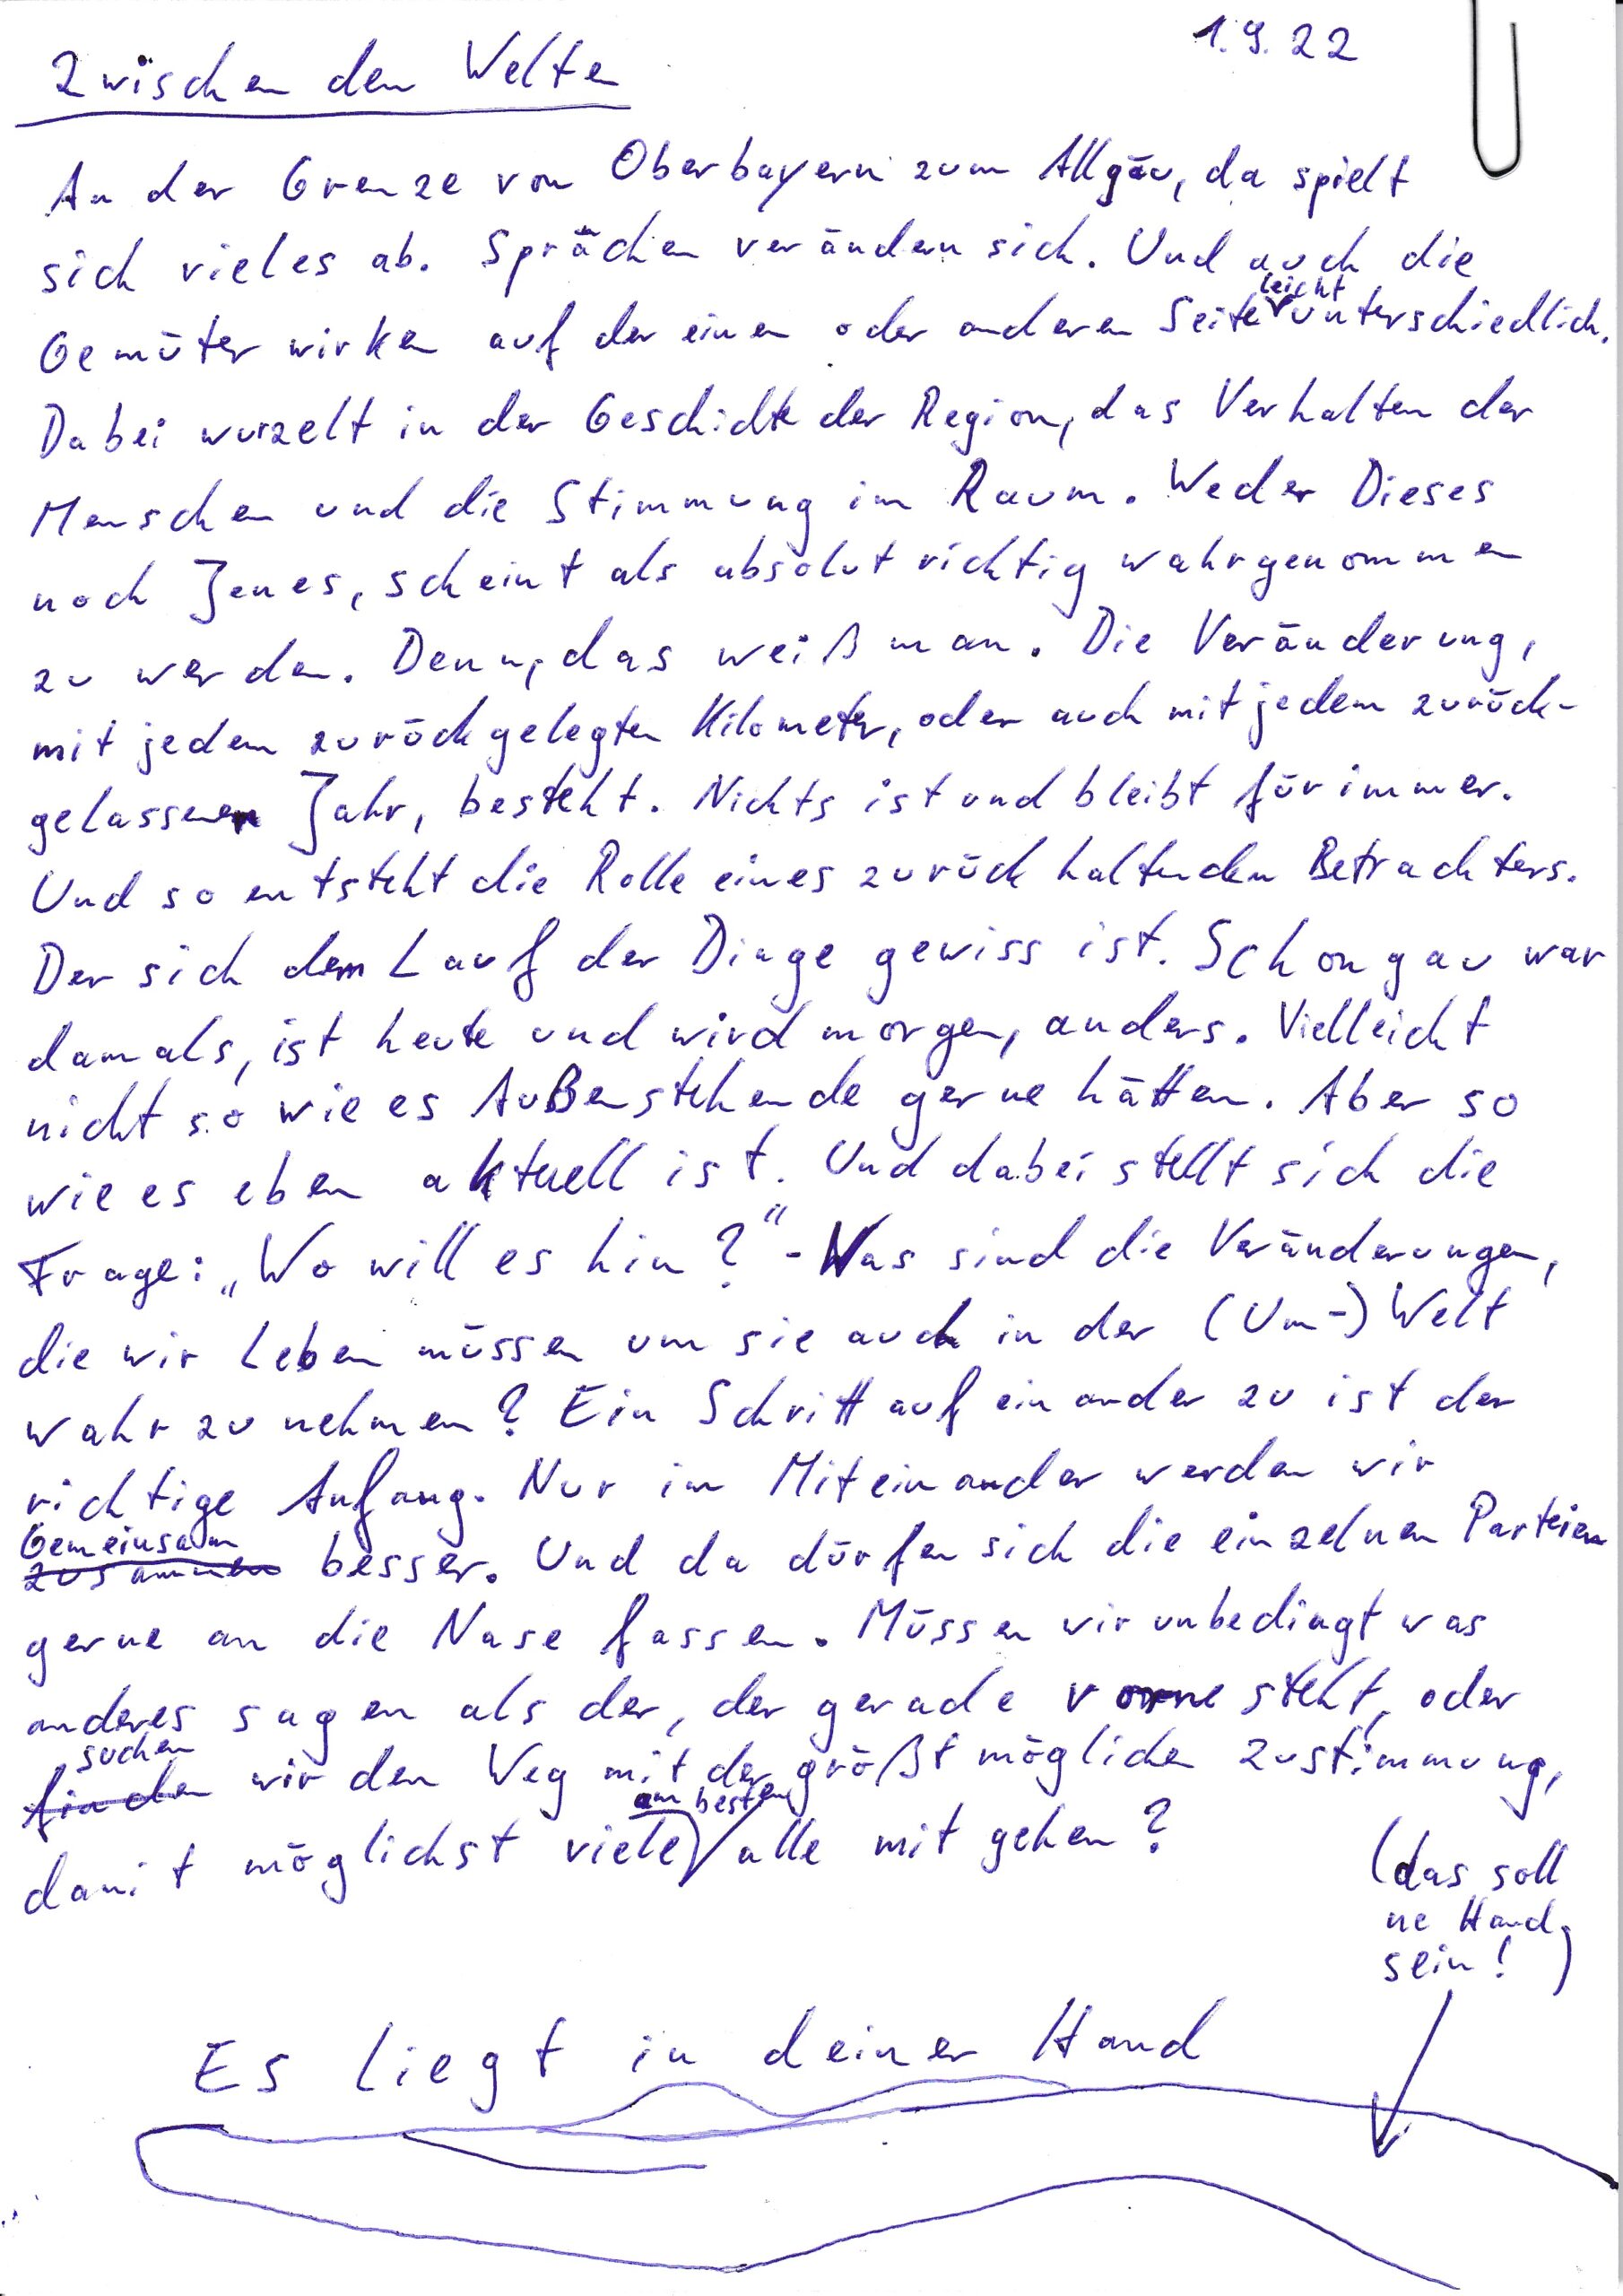 1.9.22
Zwischen den Welten
An der Grenze von Oberbayern zum Allgäu, da spielt
sich vieles ab. Sprächen verändern sich. Und auch die
leicht
Gemüter wirken auf der einen oder anderen Seite unterschiedlich.
Dabei wurzelt in der Geschichte der Region, das Verhalten der
Menschen und die Stimmung im Raum. Weder Dieses
noch Jenes, scheint als absolut richtig wahrgenommen
zu werden. Denn, das weiß man. Die Veränderung,
mit jedem zurückgelegten Kilometer, oder auch mit jedem zurück-
gelassenen Jahr, besteht. Nichts ist und bleibt für immer.
Und so entsteht die Rolle eines zurück haltenden Betrachters.
Der sich dem Lauf der Dinge gewiss ist. Schongau war
damals, ist heute und wird morgen, anders. Vielleicht
nicht so wie es Außenstehende gerne hätten. Aber so
wie es eben aktuell ist. Und dabei stellt sich die
Frage: „Wo will es hin?“ - Was sind die Veränderungen,
die wir Leben müssen um sie auch in der (Um-) Welt
wahr zu nehmen? Ein Schritt auf einander zu ist der
richtige Anfang. Nur im Miteinander werden wir
Gemeinsam
zusammen besser. Und da dürfen sich die einzelnen Parteien
gerne an die Nase fassen. Müssen wir unbedingt was
anderes sagen als der, der gerade vorne steht, oder
suchen
finden wir den Weg mit der größt möglichen Zustimmung,
am besten
damit möglichst viele) alle mit gehen?
(das soll
ne Hand
sein!)
Es liegt in deiner Hand